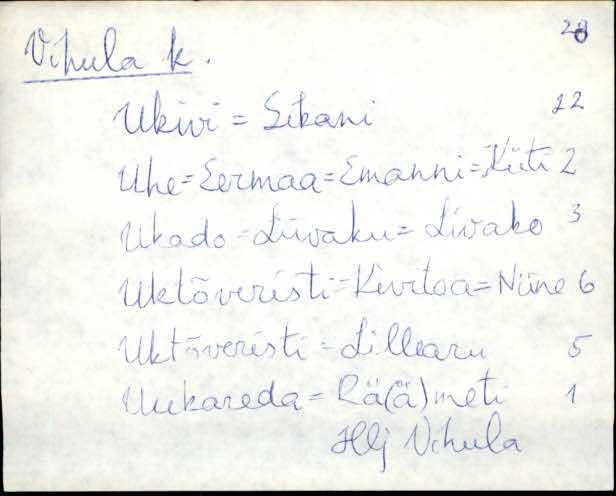 Vihula k. 28
Ukivi = Sikani 22
Uhe = Eermaa = Emanni = Küti 2
Ukado = Liivaku = Livako 3
Uktõveristi = Kivitoa = Niine 6
Uktõveristi = Lillearu 5
Uukareda = Rä(ä)meti 1
Hlj Vihula